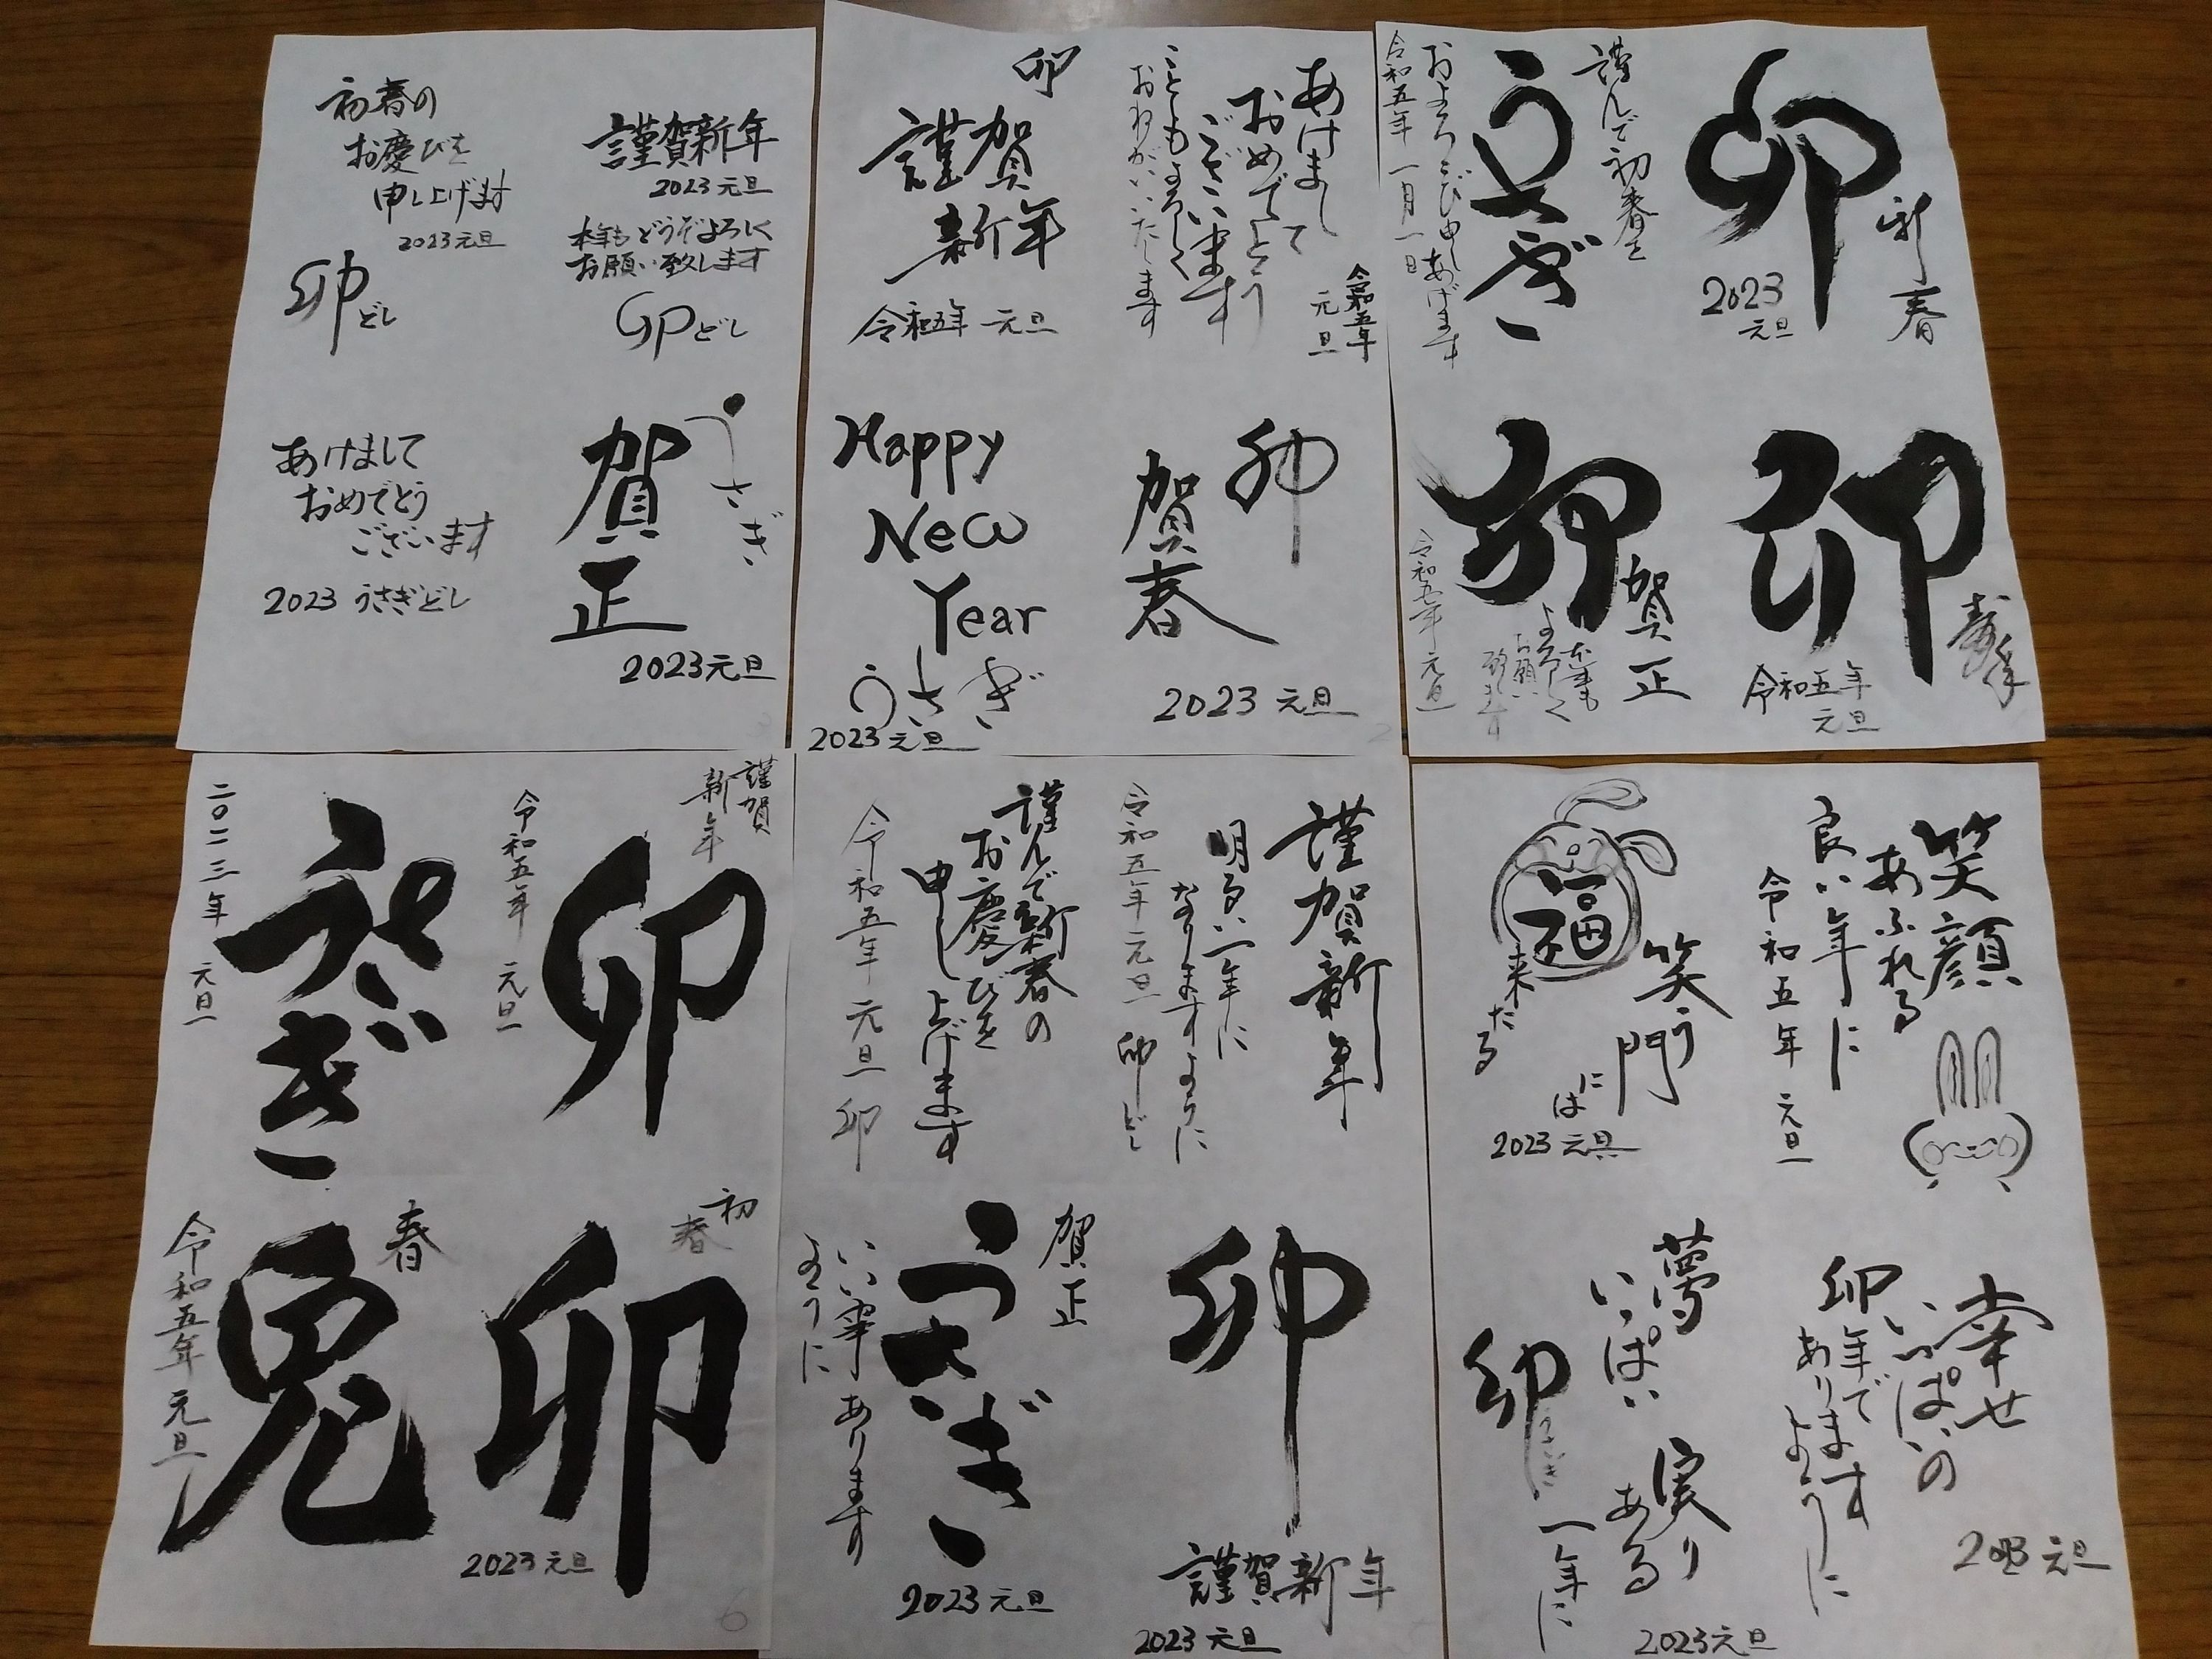 初春の
お慶びを
申し上げます
2023元旦
卯どし
謹賀新年
2023元旦
本年もどうぞよろしく
お願い致します
卯どし
あけまして
おめでとう
ございます
2023 うさぎどし
うさぎ
賀正
2023元旦
卯
謹賀
新年
令和五年 元旦
あけまして
おめでとう
ございます
ことしもよろしく
おねがいいたします
令和五年
元旦
Happy
New
Year
うさぎ
2023元旦
卯
賀春
2023 元旦
謹んで初春を
うさぎ
およろこび申しあげます
令和五年一月一日
新春
卯
2023
元旦
卯
賀正
本年も
よろしく
お願い
致します
令和五年元旦
卯
令和五年
元旦
うさぎ
二〇二三年 元旦
謹賀
新年
卯
令和五年 元旦
春
兎
令和五年 元旦
初
春
卯
2023元旦
謹んで新春の
お慶びを
申し上げます
令和五年元旦 卯
謹賀新年
明るい一年に
なりますように
令和五年元旦 卯どし
賀正
うさぎ
いい事あります
ように
2023元旦
卯
謹賀新年
2023元旦
笑う
門
には
福
来たる
2023元旦
笑顔
あふれる
良い年に
令和五年 元旦
夢
いっぱい
実り
ある
一年に
卯
うさぎ
2023元旦
幸せ
いっぱいの
卯年で
あります
ように
2023 元旦
6